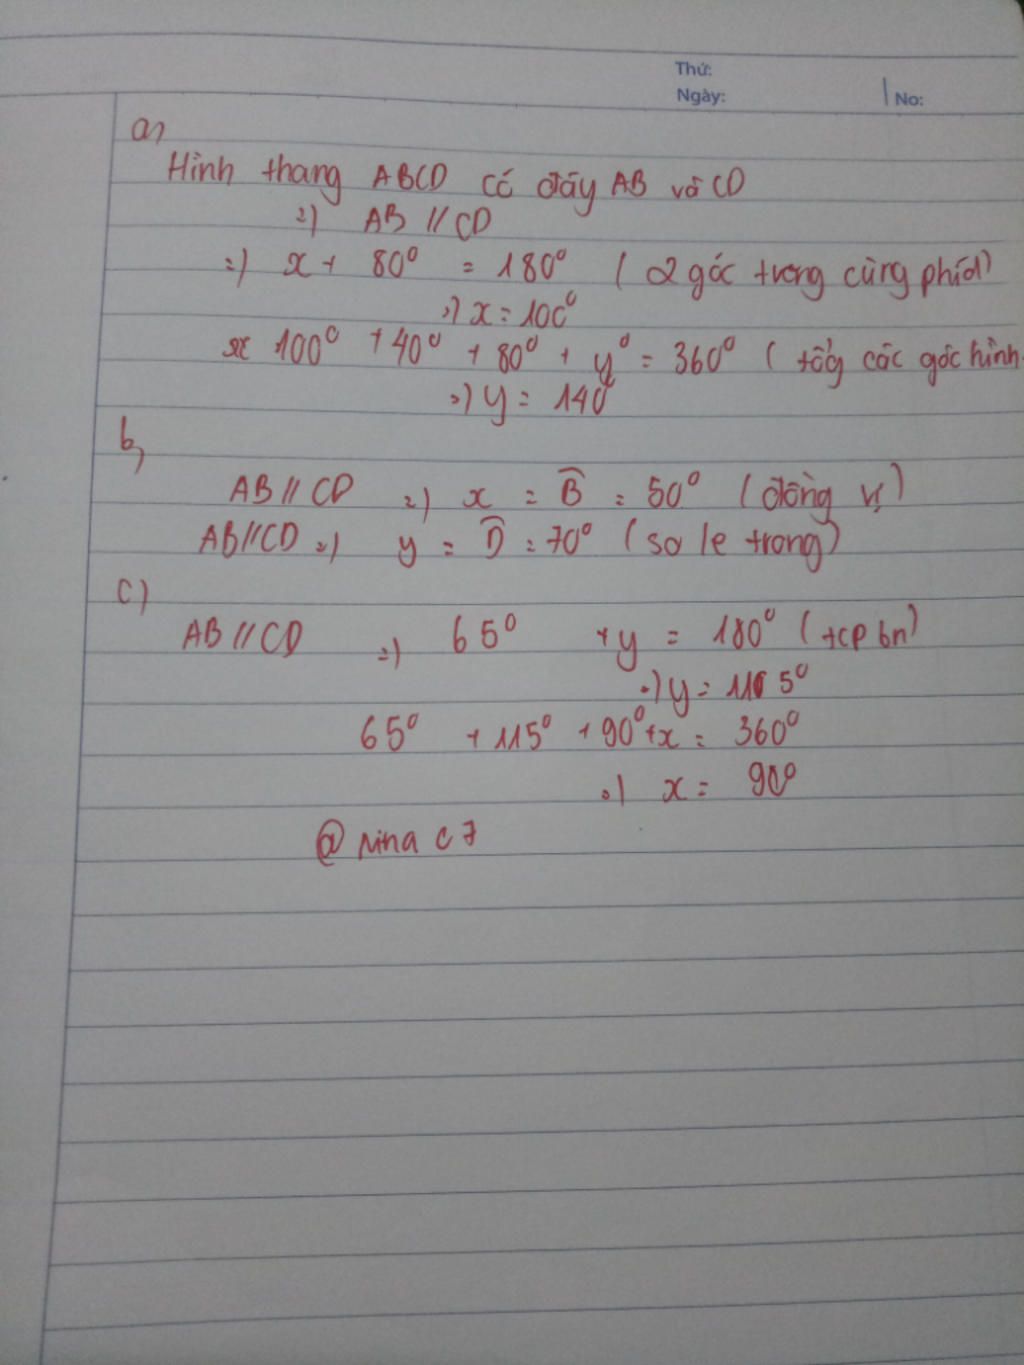 Thứ:
Ngày:
No:
a,
Hình thang ABCD có đáy AB và CD
=) AB // CD
=) x + 80° = 180° (2 góc trong cùng phía)
=) x = 100°
100° + 40° + 80° + y° = 360° ( tổg các góc hình
=) y = 140
b,
AB // CD =) x = B̂ = 50° (đồng vị)
AB//CD =) y = D̂ = 70° (so le trong)
c)
AB // CD =) 65° + y = 180° (tcp bn)
=) y = 115°
65° + 115° + 90° + x = 360°
=) x = 90°
@ Nina c7